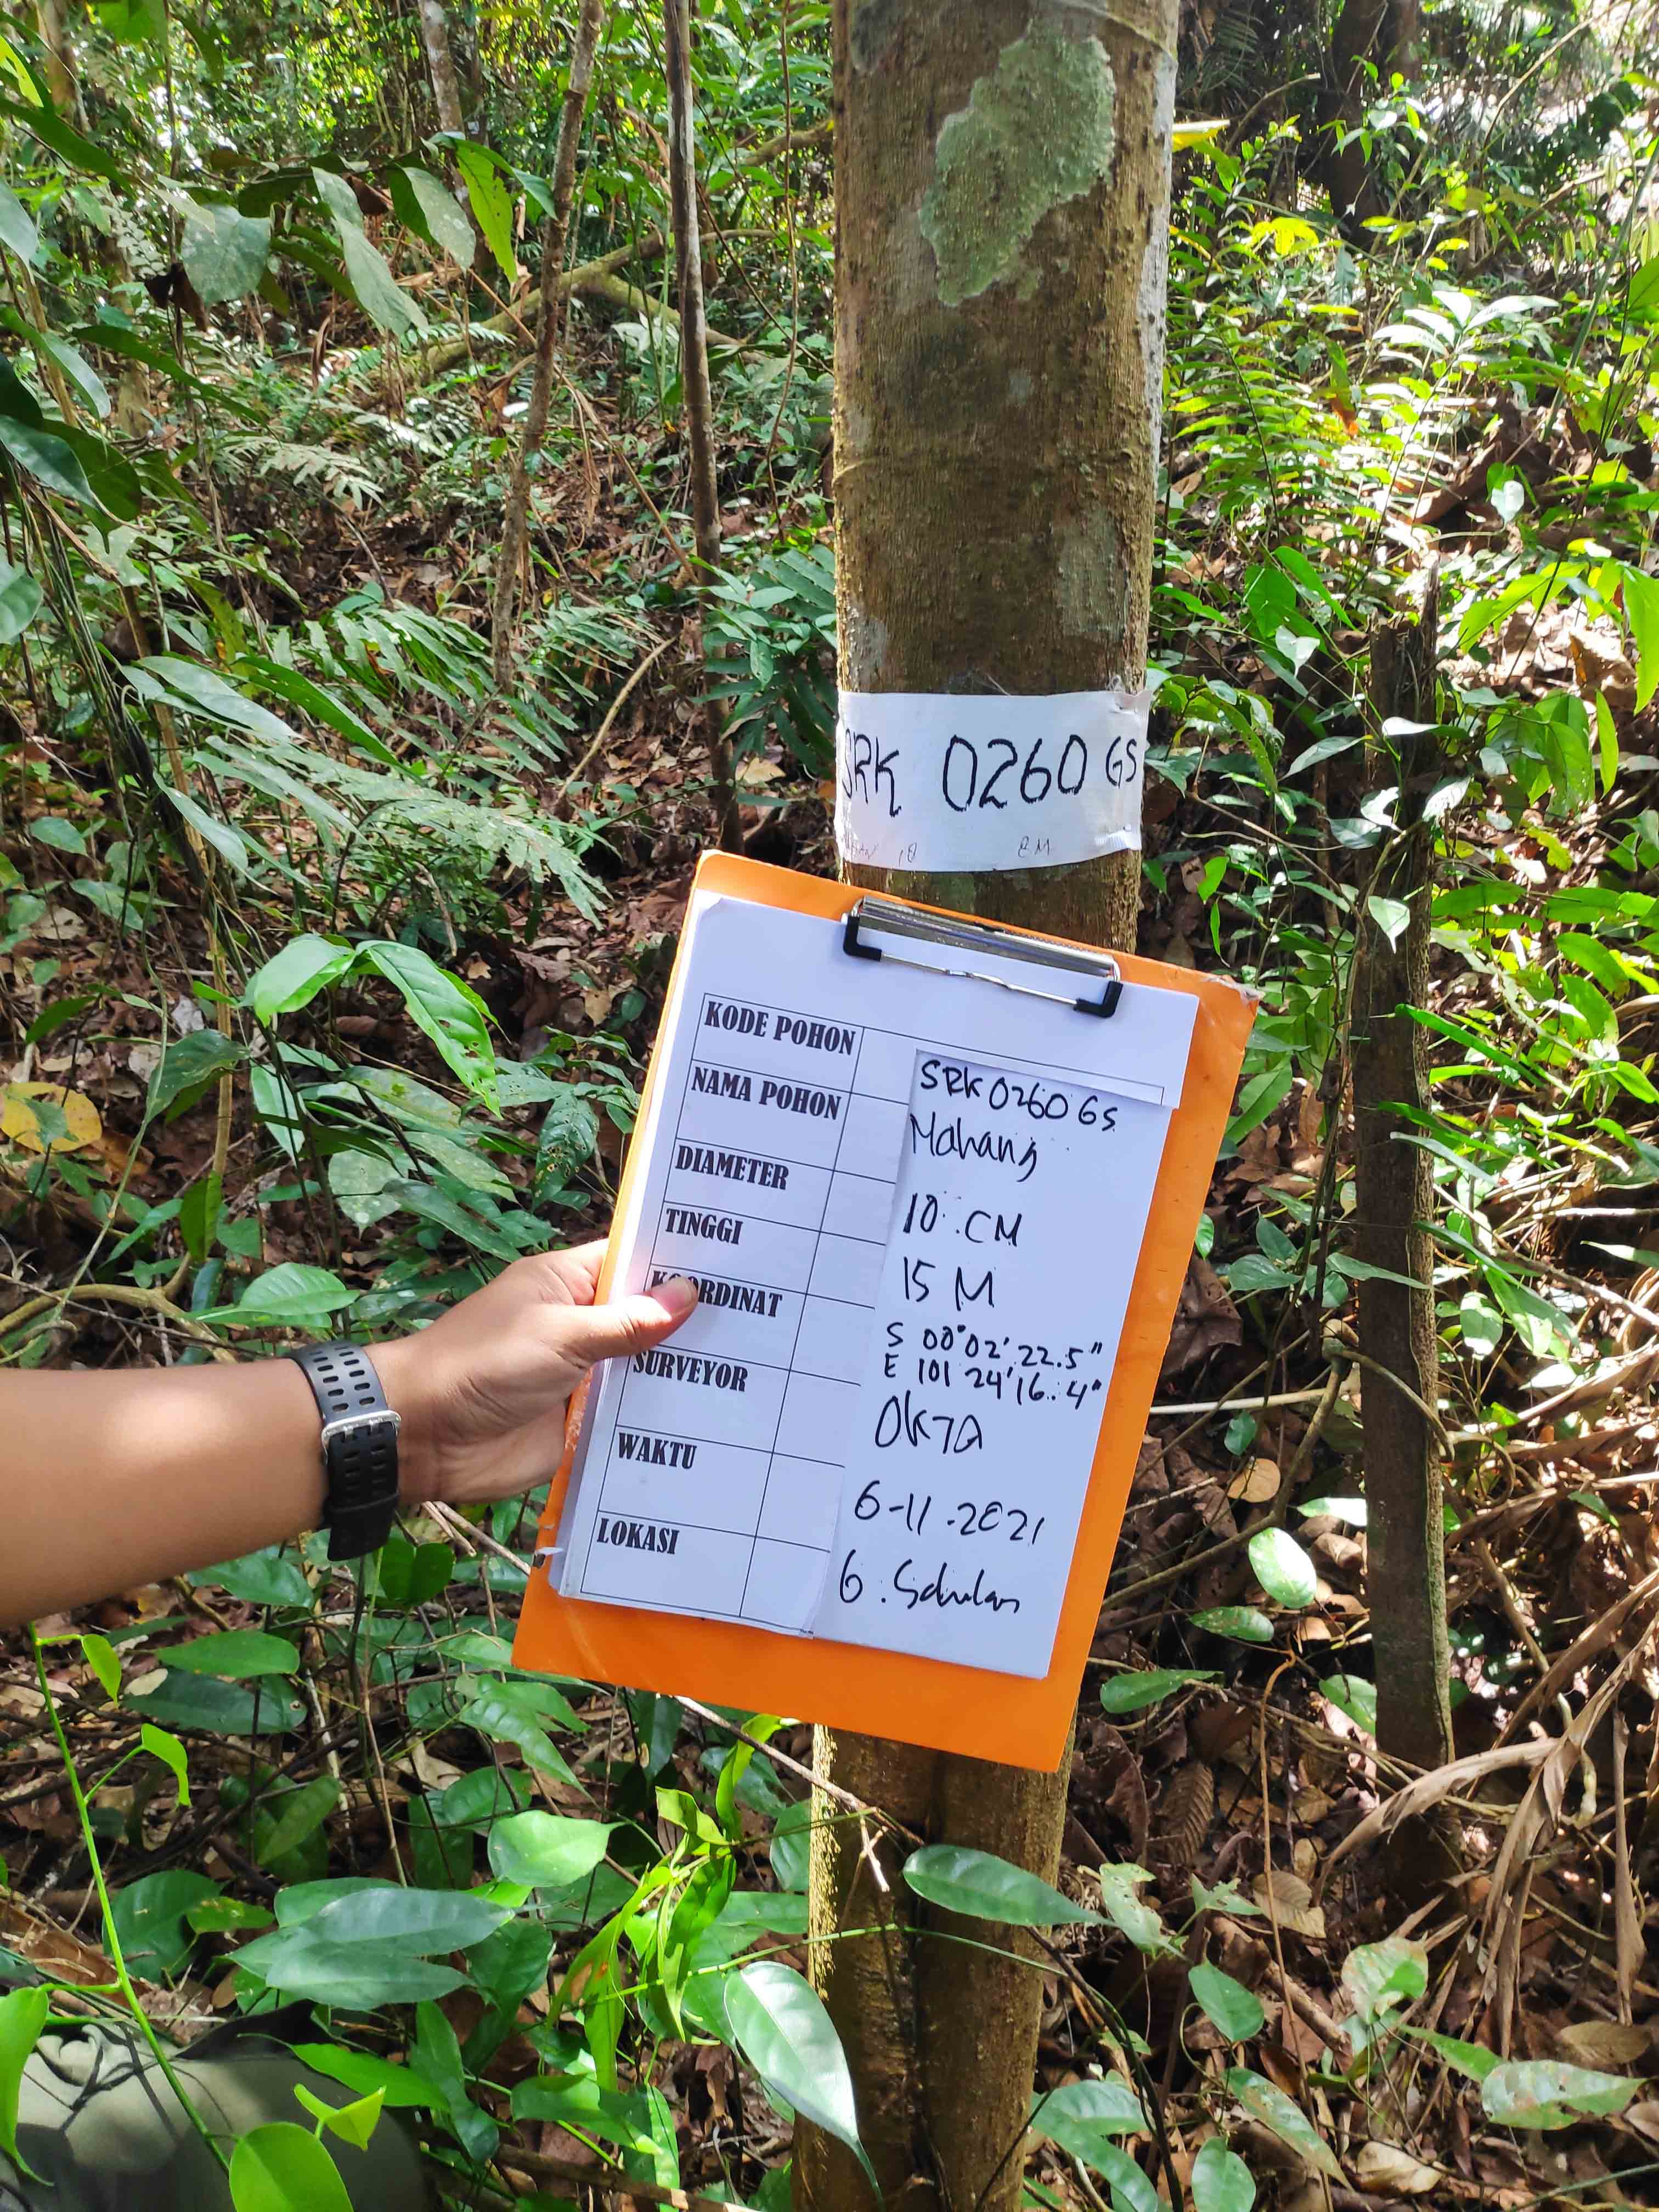 SRK 0260 GS
18 CM
KODE POHON SRK 0260 GS
NAMA POHON Mahang
DIAMETER 10 CM
TINGGI 15 M
KOORDINAT S 00°02'22.5"
E 101 24'16.4"
SURVEYOR OKTA
WAKTU 6-11-2021
LOKASI G.